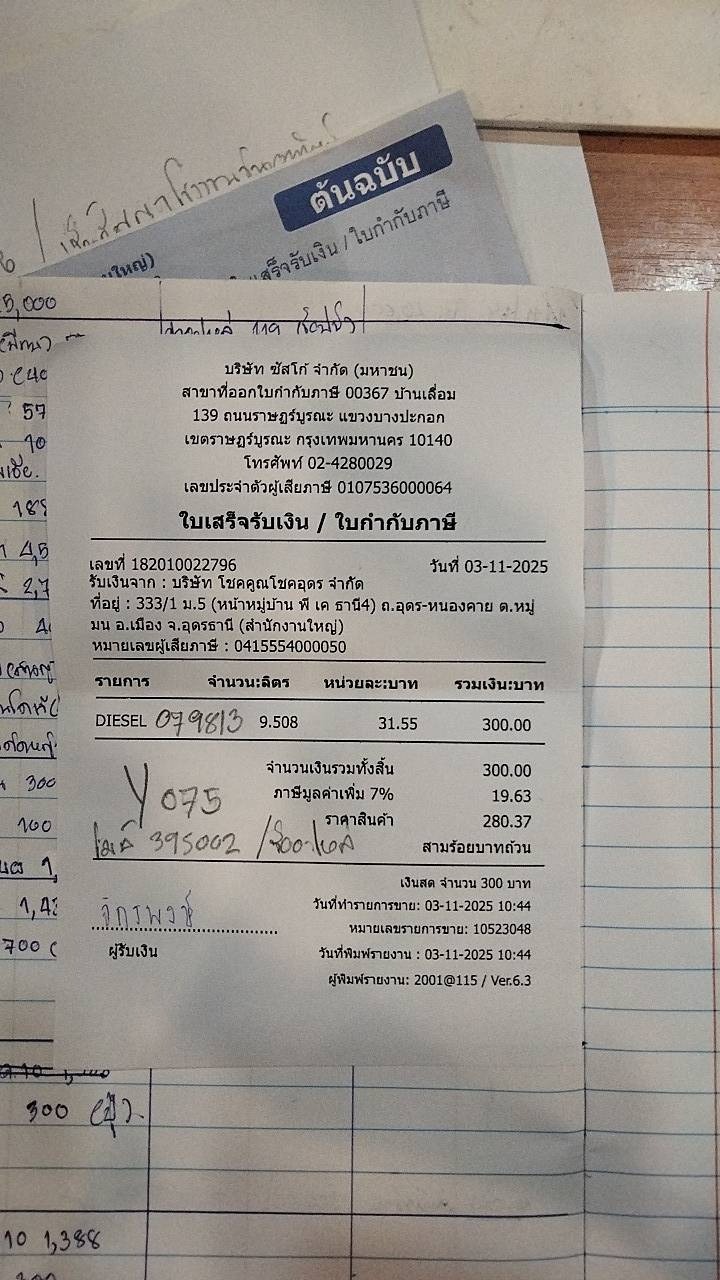 ต้นฉบับ
ใบเสร็จรับเงิน / ใบกำกับภาษี
5,000
57
10
300
100
1,
700
บริษัท ซัสโก้ จำกัด (มหาชน)
สาขาที่ออกใบกำกับภาษี 00367 บ้านเลื่อม
139 ถนนราษฎร์บูรณะ แขวงบางปะกอก
เขตราษฎร์บูรณะ กรุงเทพมหานคร 10140
โทรศัพท์ 02-4280029
เลขประจำตัวผู้เสียภาษี 0107536000064
ใบเสร็จรับเงิน / ใบกำกับภาษี
เลขที่ 182010022796 วันที่ 03-11-2025
รับเงินจาก : บริษัท โชคคูณโชคอุดร จำกัด
ที่อยู่ : 333/1 ม.5 (หน้าหมู่บ้าน พี เค ธานี4) ถ.อุดร-หนองคาย ต.หมู่
มน อ.เมือง จ.อุดรธานี (สำนักงานใหญ่)
หมายเลขผู้เสียภาษี : 0415554000050
รายการ จำนวน:ลิตร หน่วยละ:บาท รวมเงิน:บาท
DIESEL 079813 9.508 31.55 300.00
จำนวนเงินรวมทั้งสิ้น 300.00
Y 075 ภาษีมูลค่าเพิ่ม 7% 19.63
ราคาสินค้า 280.37
ไมล์ 395002 สามร้อยบาทถ้วน
เงินสด จำนวน 300 บาท
จักรพงษ์ วันที่ทำรายการขาย: 03-11-2025 10:44
หมายเลขรายการขาย: 10523048
ผู้รับเงิน วันที่พิมพ์รายงาน : 03-11-2025 10:44
ผู้พิมพ์รายงาน: 2001@115 / Ver.6.3
300
10 1,388